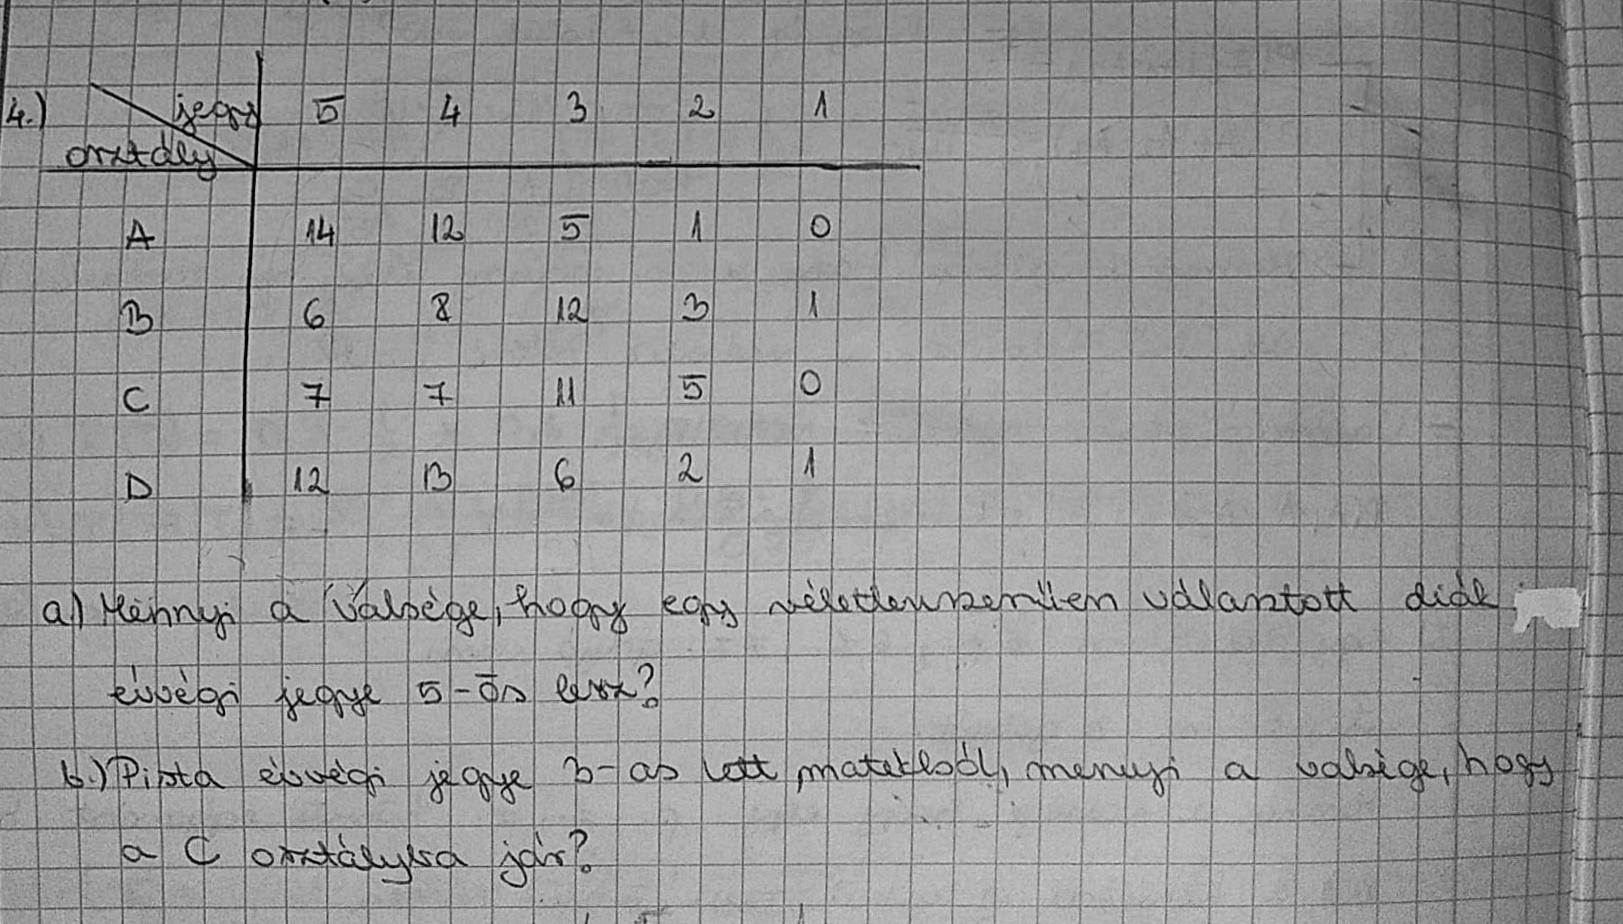 4.) jegy 5 4 3 2 1
osztály
A 14 12 5 1 0
B 6 8 12 3 1
C 7 7 11 5 0
D 12 13 6 2 1
a) Mennyi a valsége, hogy egy véletlenszerűen választott diák
évvégi jegye 5-ös lesz?
b.) Pista évvégi jegye 3-as lett matekból, mennyi a valsége, hogy
a C osztályba jár?